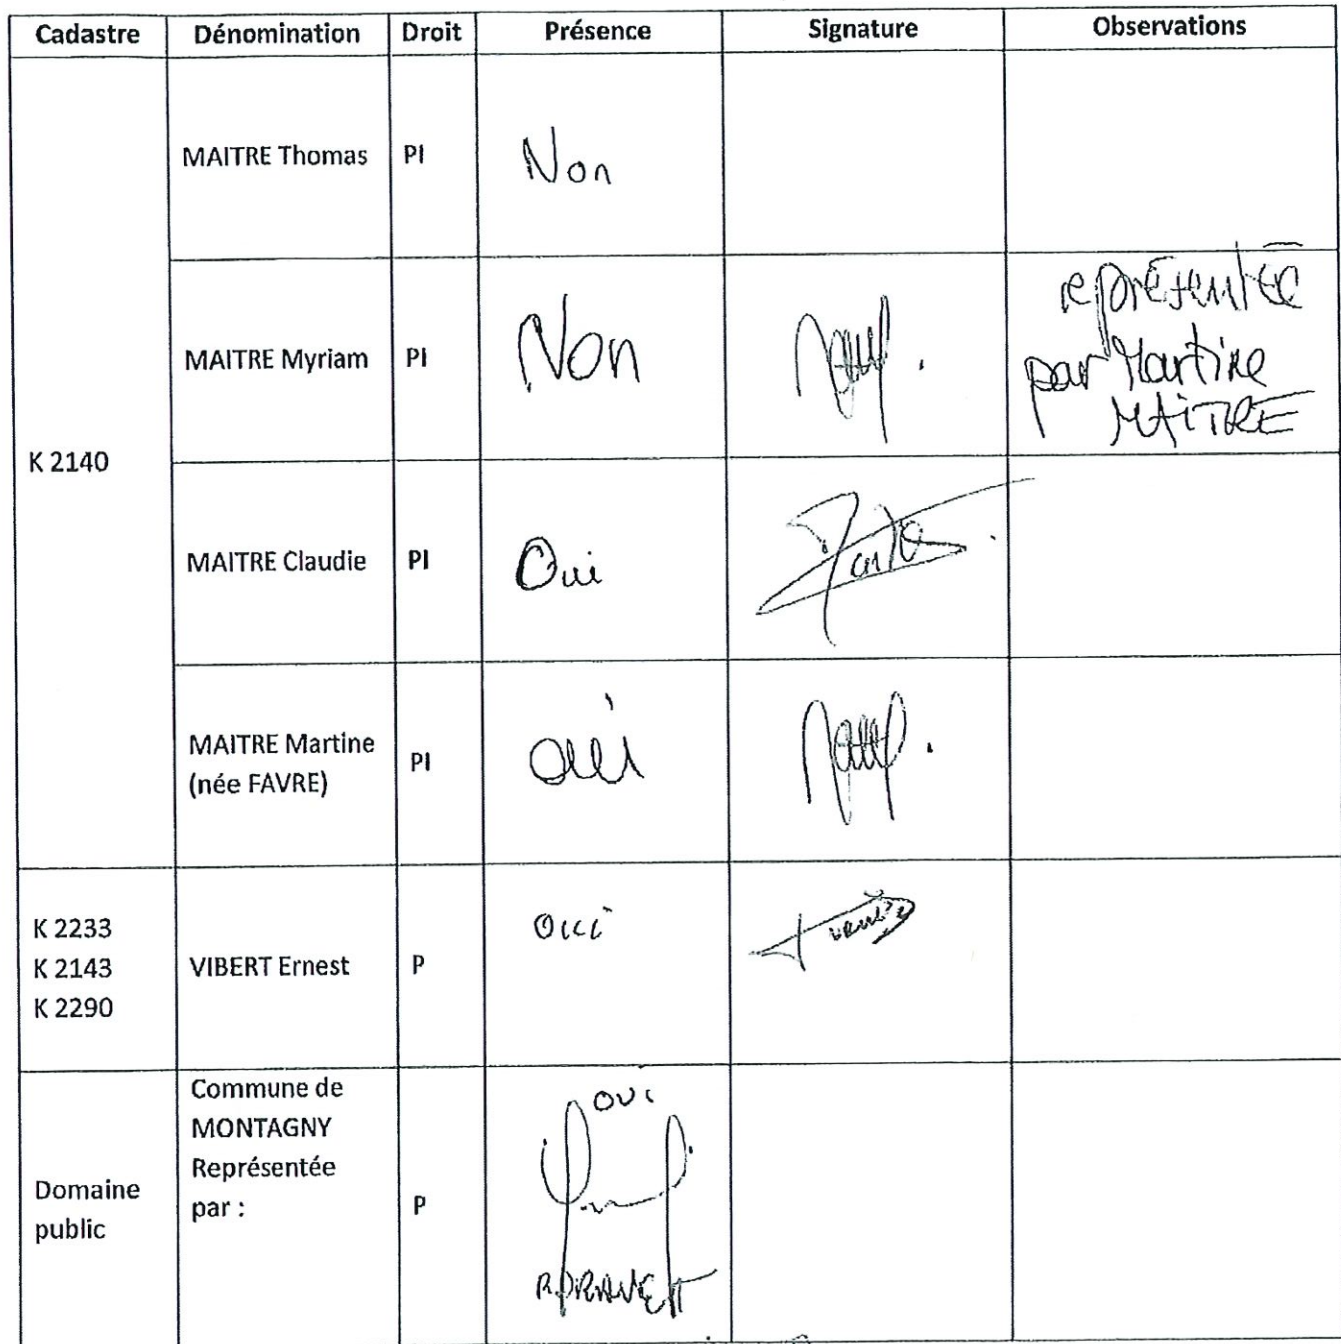 Cadastre Dénomination Droit Présence Signature Observations
MAITRE Thomas PI Non
K 2140
MAITRE Myriam PI Non
représentée
par Martine
MAITRE
MAITRE Claudie PI Oui
MAITRE Martine
(née FAVRE)
PI oui
K 2233
K 2143
K 2290
VIBERT Ernest P oui
Domaine
public
Commune de
MONTAGNY
Représentée
par :
P
oui